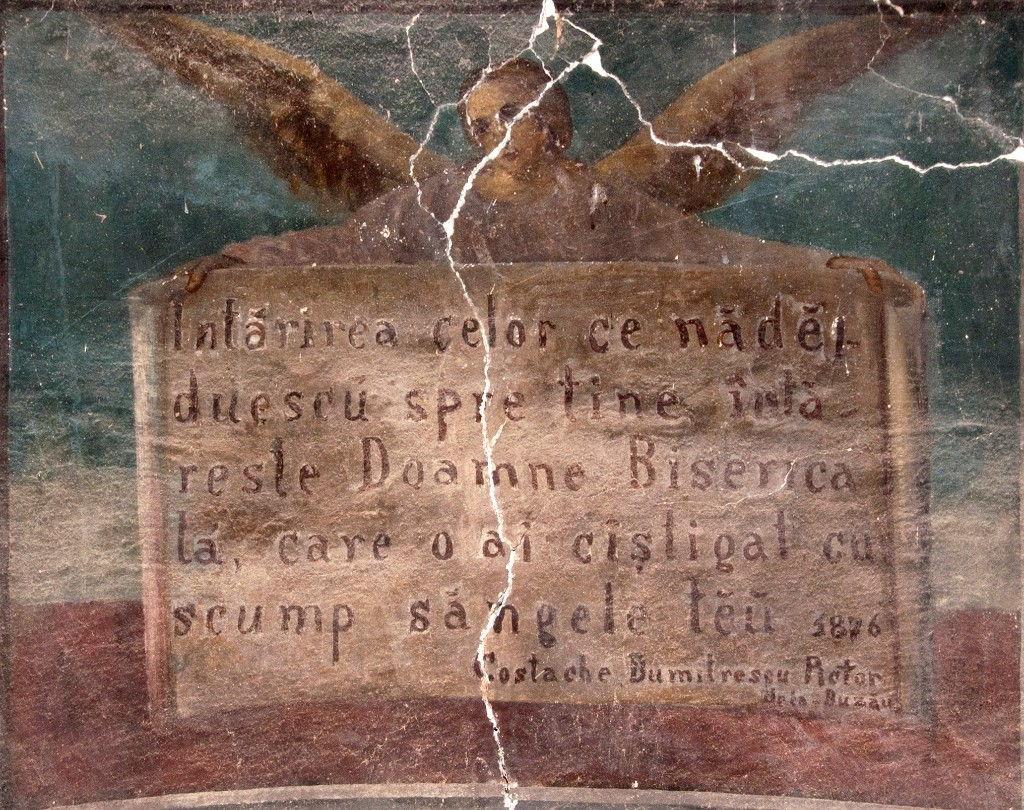 Intărirea celor ce nădĕj-
duescu spre tine întă-
reste Doamne Biserica
ta, care o ai cișligat cu
scump săngele tĕŭ 1876
Costache Dumitrescu Pictor
Buzău